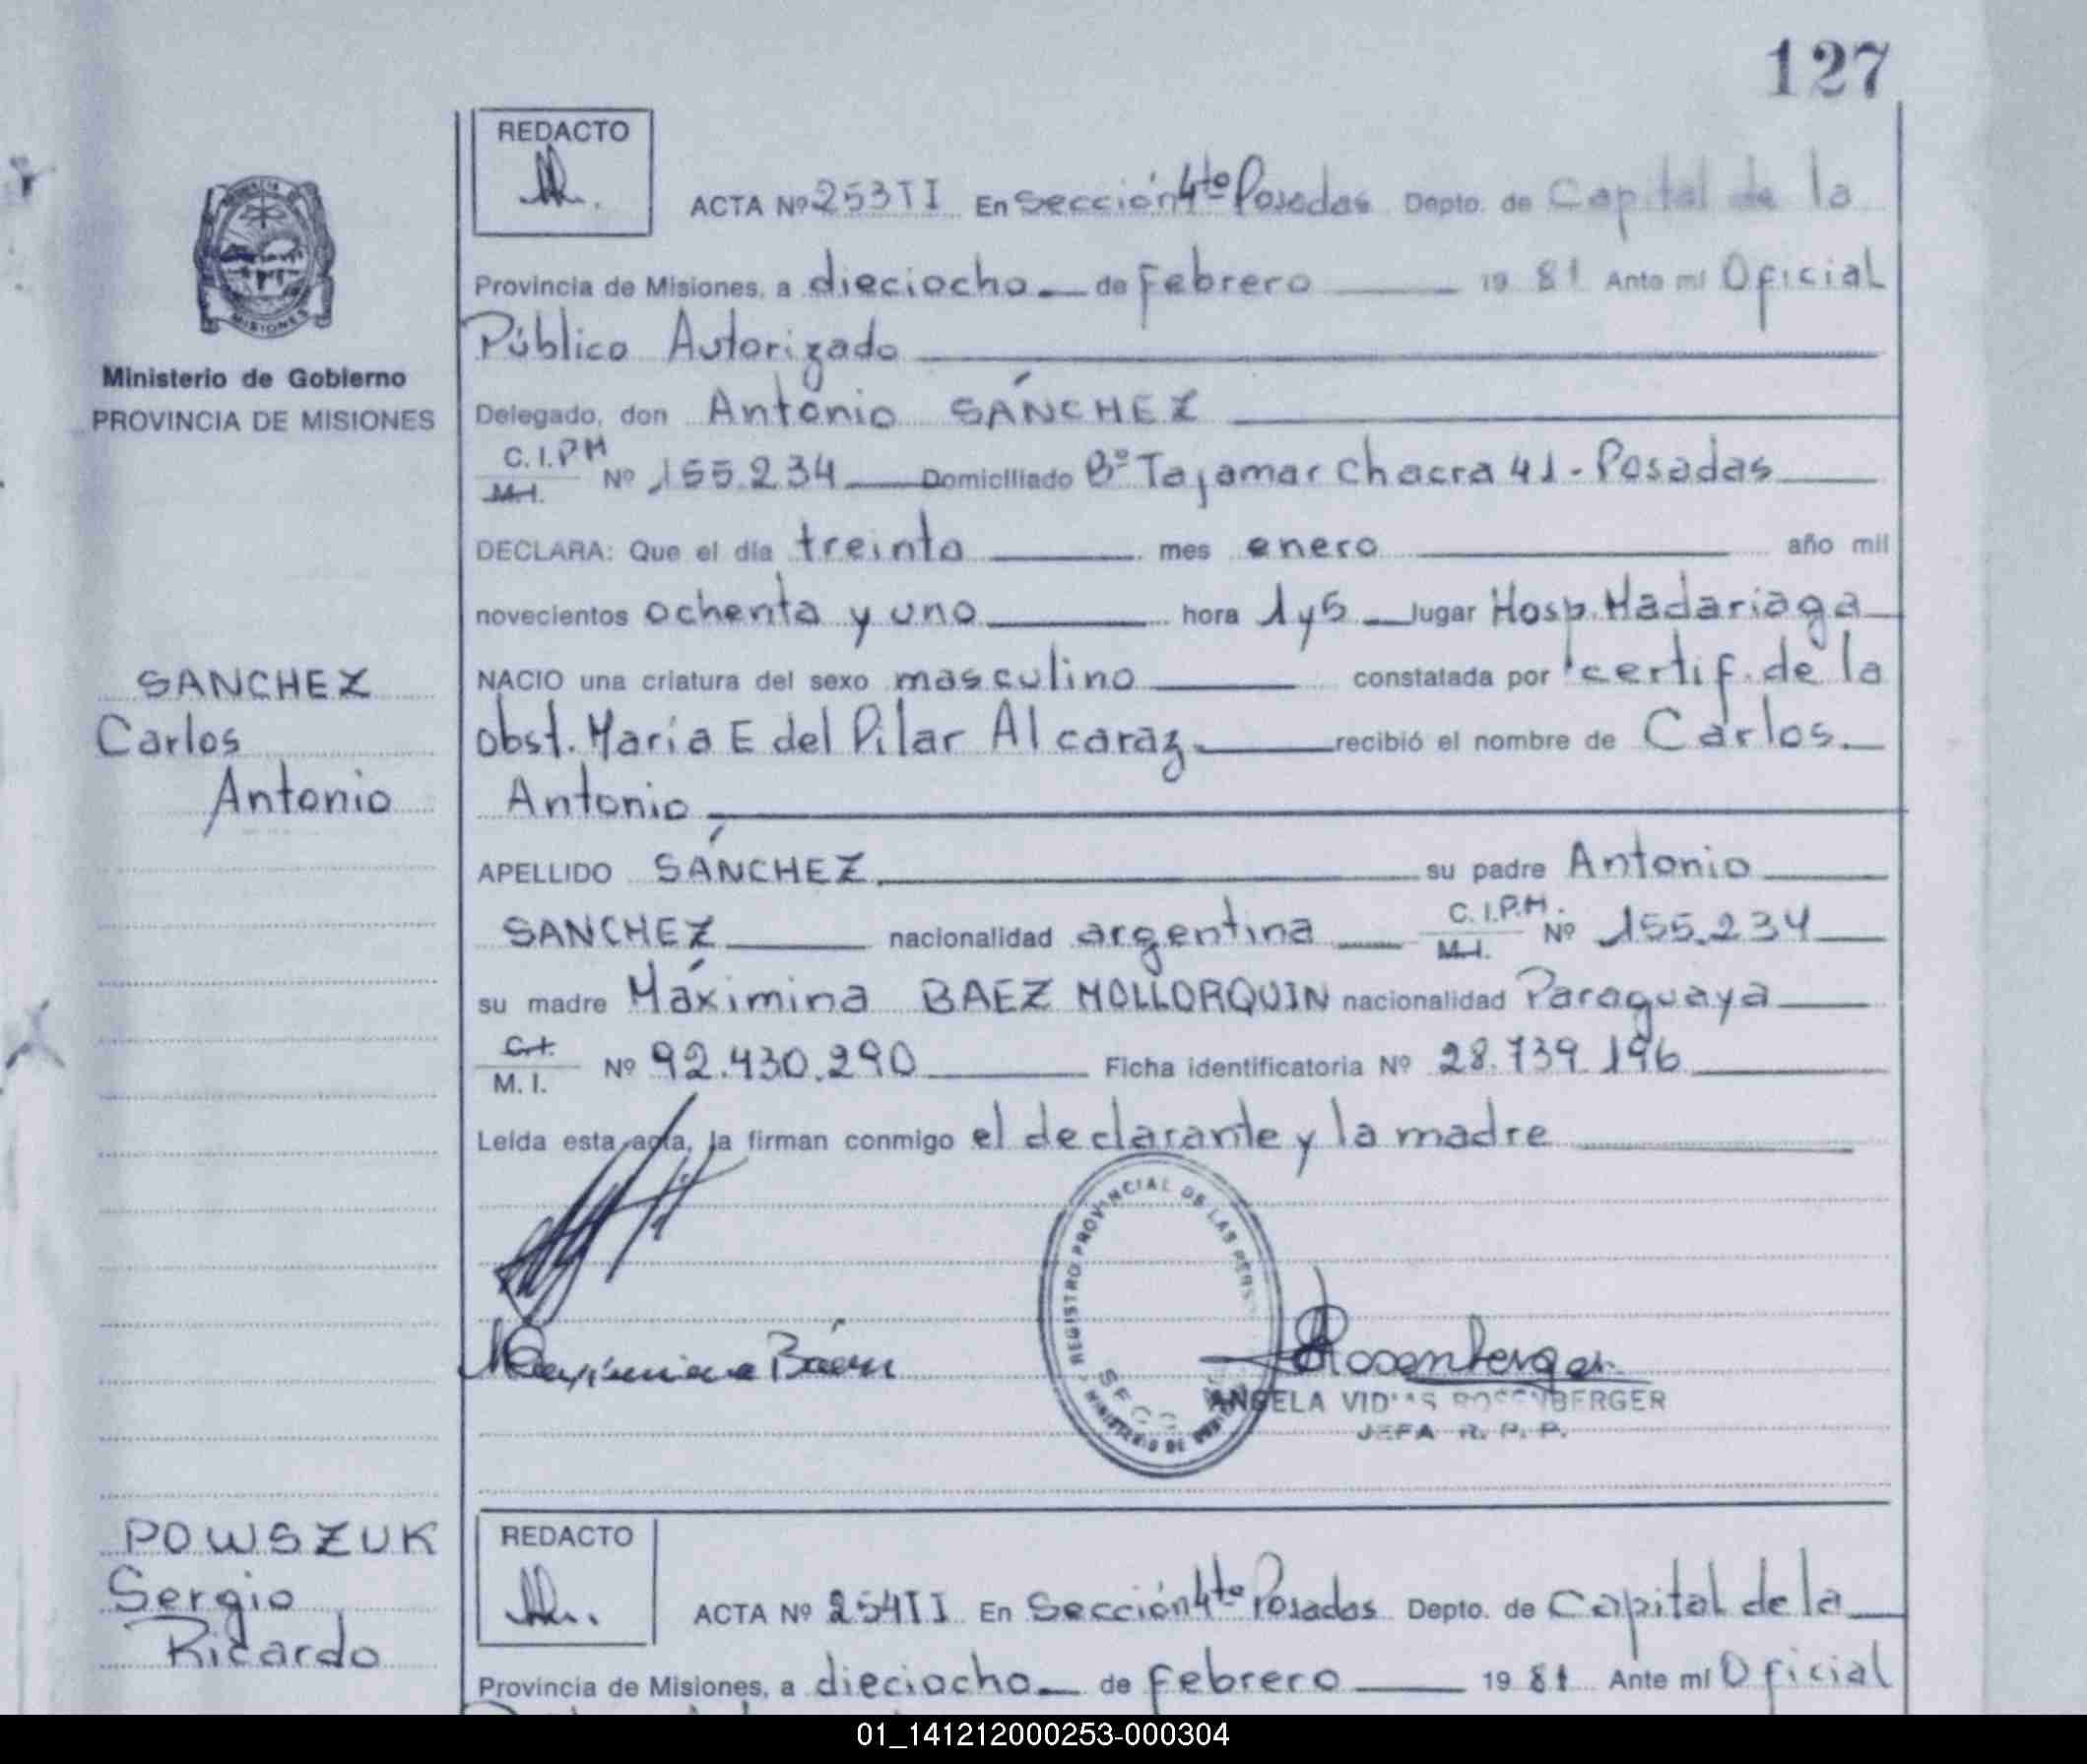 127
REDACTO
ACTA Nº 253 TI En Sección 4to Posadas Depto. de Capital de la
Provincia de Misiones, a dieciocho de Febrero 19 81 Ante mí Oficial
Público Autorizado
MISIONES
Ministerio de Gobierno
PROVINCIA DE MISIONES
Delegado, don Antonio SÁNCHEZ
C.I.P.M
M.I. Nº 155.234 Domiciliado Bº Tajamar Chacra 41 - Posadas
DECLARA: Que el día treinta mes enero año mil
novecientos ochenta y uno hora 1 y 5 lugar Hosp. Madariaga
SANCHEZ
Carlos
Antonio
NACIO una criatura del sexo masculino constatada por certif. de la
obst. María E del Pilar Alcaraz recibió el nombre de Carlos
Antonio
APELLIDO SÁNCHEZ su padre Antonio
SANCHEZ nacionalidad argentina C.I.P.M. M.I. Nº 155.234
su madre Máximina BAEZ MOLLORQUIN nacionalidad Paraguaya
C.I.
M.I. Nº 92.430.290 Ficha identificatoria Nº 28.739.196
Leída esta acta, la firman conmigo el declarante y la madre
REGISTRO PROVINCIAL DE LAS PERS
MINISTERIO DE
Maximina Báez
Rosenberger
ANGELA ROSENBERGER
JEFA R. P. P.
POWSZUK
Sergio
Ricardo
REDACTO
ACTA Nº 254 TI En Sección 4to Posadas Depto. de Capital de la
Provincia de Misiones, a dieciocho de Febrero 19 81 Ante mí Oficial
01_141212000253-000304